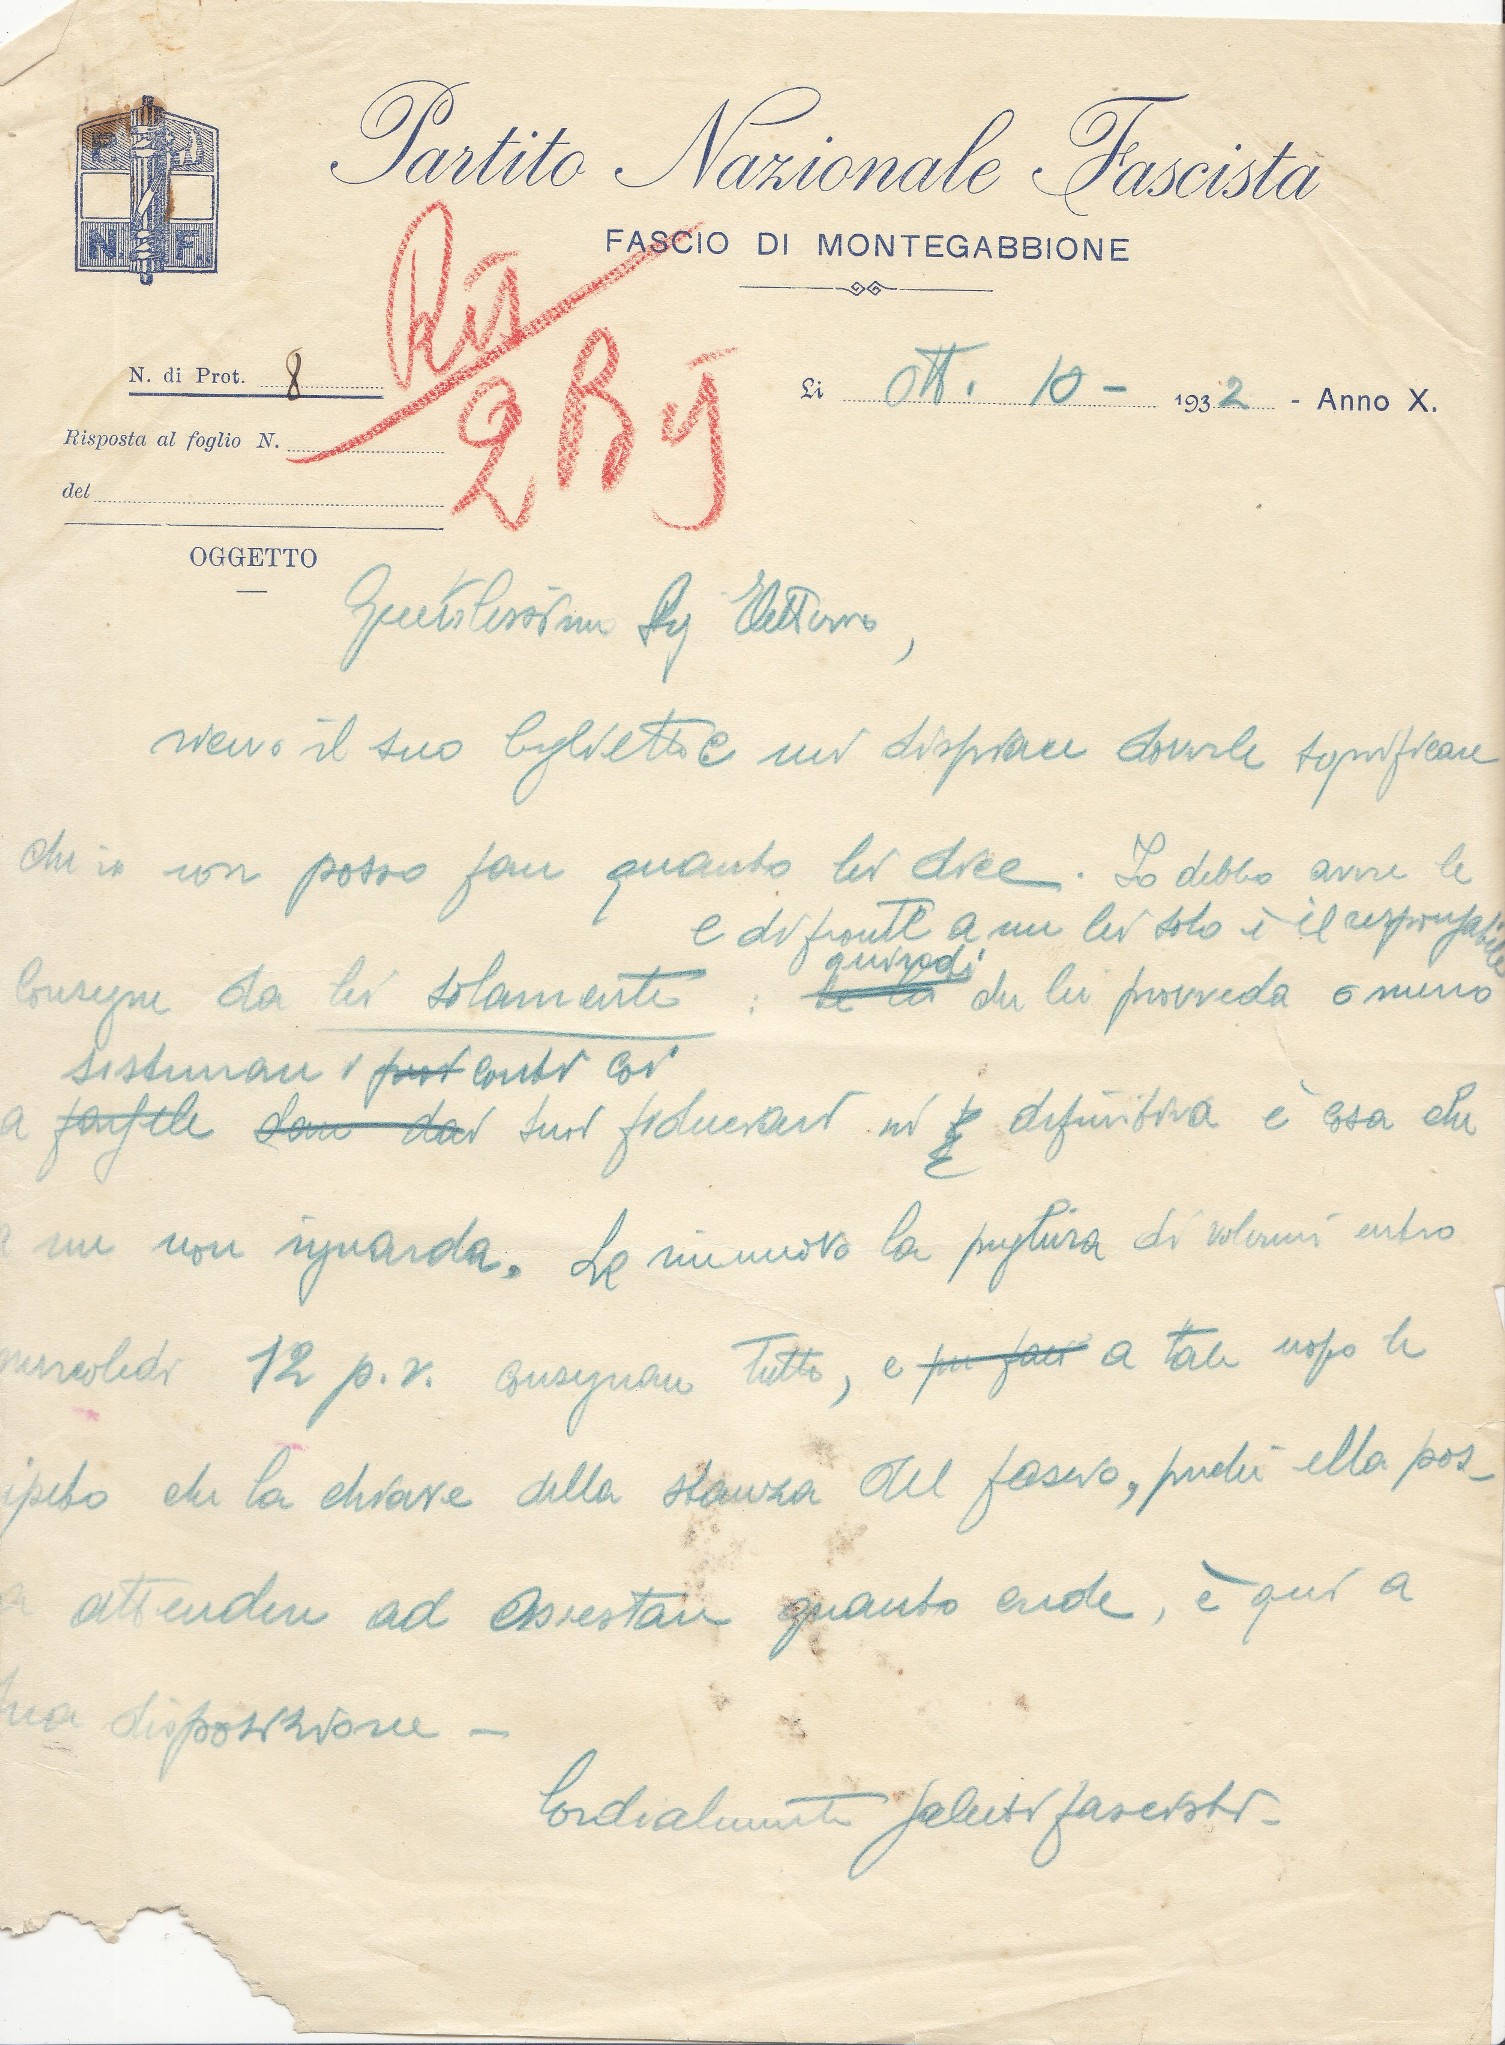 P N
N. F.
Partito Nazionale Fascista
FASCIO DI MONTEGABBIONE
Ris
2 B
N. di Prot. 8
Li Ott. 10 - 1932 - Anno X.
Risposta al foglio N.
del
OGGETTO
Gentilissimo Sig
ricevo il suo biglietto e mi dispiace doverle significare
che io non posso fare quanto lei dice. Io debbo avere le
e di fronte a me lei solo è il responsabile
quindi
consegne da lei solamente : che lei provveda o meno
sistemare i conti coi
a suoi fiduciari in definitiva è cosa che
a me non riguarda. Le rinnovo la preghiera di volermi entro
mercoledì 12 p.v. consegnare tutto, e per fare a tale uopo le
ripeto che la chiave della stanza del fascio, perchè ella pos-
sa attendere ad assestare quanto crede, è qui a
sua disposizione -
Cordialmente saluti fascisti -